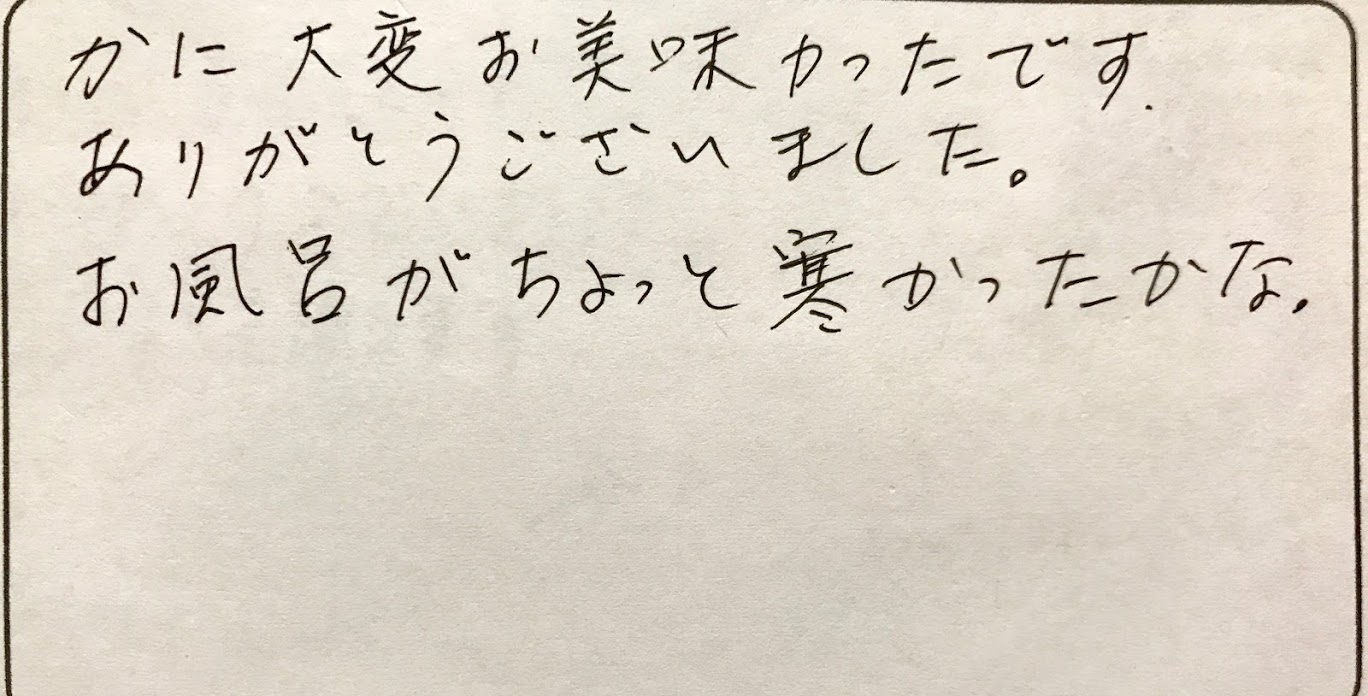 かに大変お美味かったです.
ありがとうございました。
お風呂がちょっと寒かったかな.